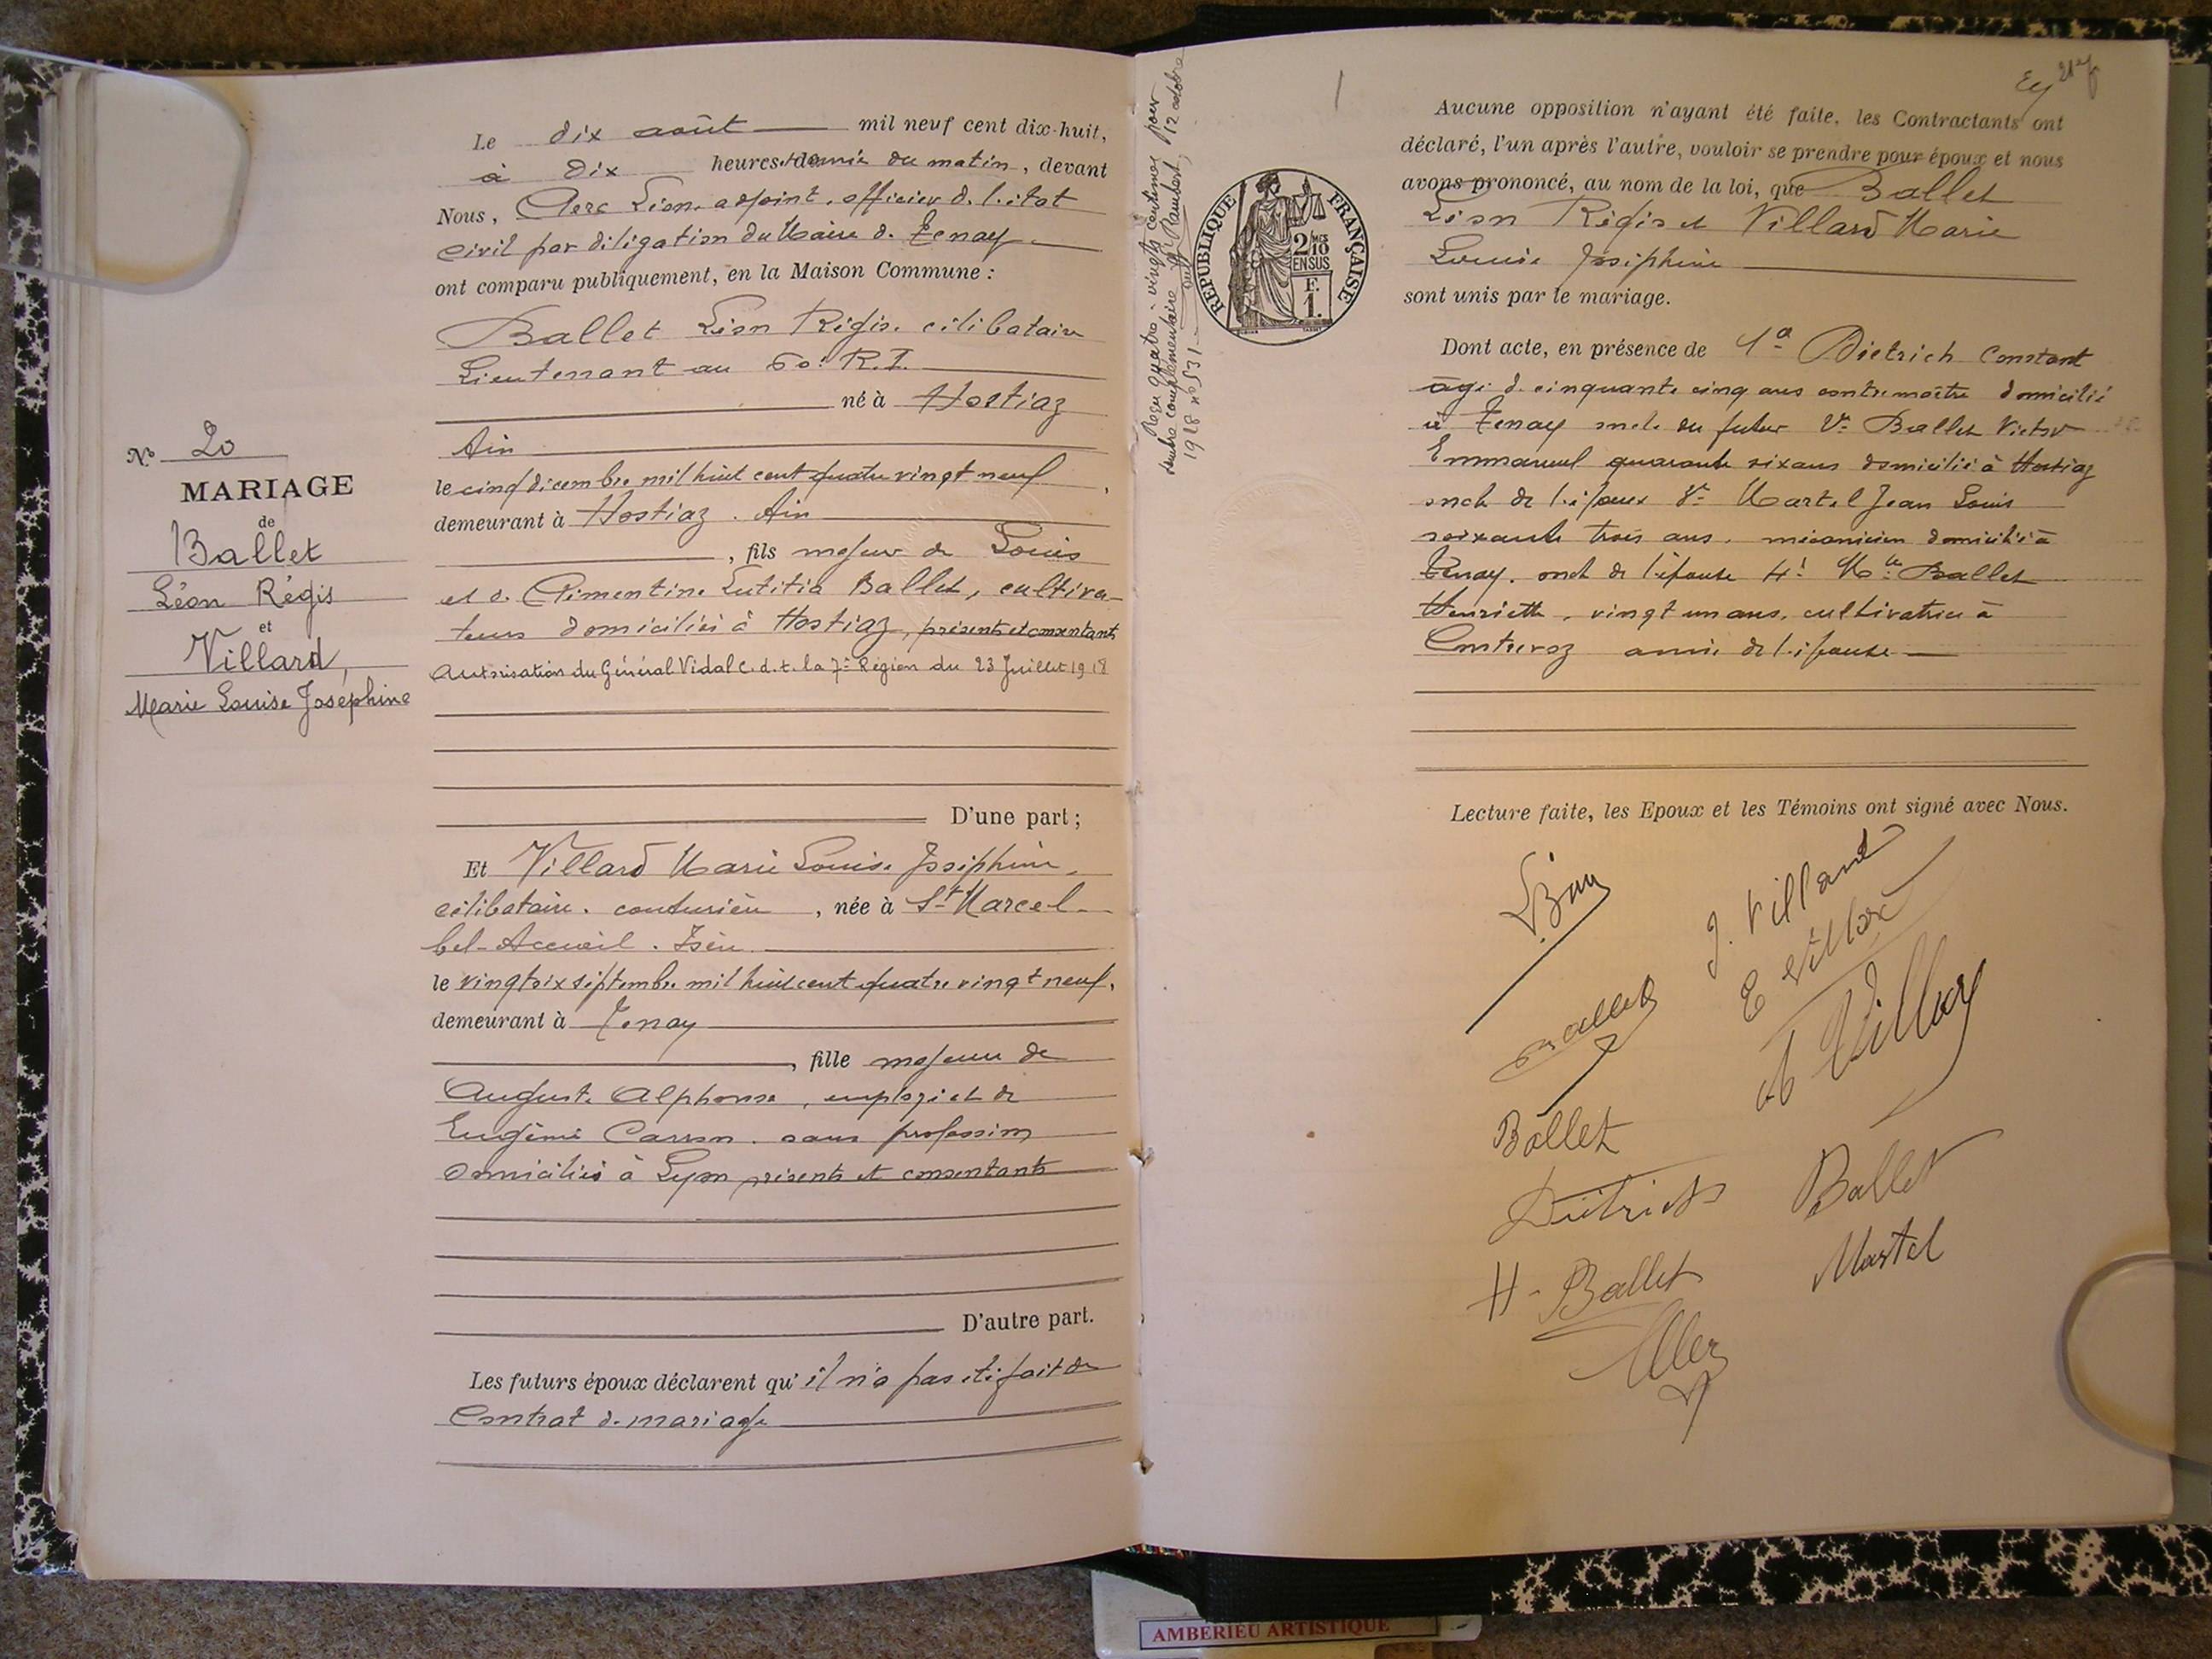 N° 20
MARIAGE
de
Ballet
Léon Régis
et
Villard,
Marie Louise Josephine
Le dix août mil neuf cent dix-huit,
à Dix heures et demie du matin, devant
Nous, Clerc Léon, adjoint, officier de l'état
civil par déligation du Maire de Tenay
ont comparu publiquement, en la Maison Commune :
Ballet Léon Régis. célibataire
Lieutenant au 60e R.I.
né à Hostiaz
Ain
le cinq décembre mil huit cent quatre vingt neuf,
demeurant à Hostiaz. Ain
, fils majeur de Louis
et de Clémentine Letitia Ballet, cultiva-
teurs domiciliés à Hostiaz, présents et consentants
Autorisation du Général Vidal C.d.t. la 7e Région du 23 Juillet 1918
D'une part ;
Et Villard Marie Louise Joséphine,
célibataire. couturière, née à St Marcel
bel-Accueil. Isère
le vingt six septembre mil huit cent quatre vingt neuf,
demeurant à Tenay
, fille majeure de
Auguste Alphonse, employé et de
Eugénie Carron. sans profession
domiciliés à Lyon présents et consentants
D'autre part.
Les futurs époux déclarent qu'il n'a pas été fait de
Contrat de mariage
Reçu quatre-vingts centimes pour
timbre complémentaire St Rambert, 12 octobre
1918 n° 531
RÉPUBLIQUE FRANÇAISE
2/10
EN SUS
F.
1.
Aucune opposition n'ayant été faite, les Contractants ont
déclaré, l'un après l'autre, vouloir se prendre pour époux et nous
avons prononcé, au nom de la loi, que Ballet
Léon Régis et Villard Marie
Louise Joséphine
sont unis par le mariage.
Dont acte, en présence de 1° Dietrich Constant
âgé de cinquante cinq ans contremaître domicilié
à Tenay oncle du futur 2° Ballet Victor
Emmanuel quarante six ans domicilié à Hostiaz
oncle de l'époux 3° Martel Jean Louis
soixante trois ans, mécanicien domicilié à
Tenay. oncle de l'épouse 4° Mlle Ballet
Henriette, vingt un ans, cultivatrice à
Contrevoz amie de l'épouse
Lecture faite, les Epoux et les Témoins ont signé avec Nous.
J. Villard
E Villard
A Villard
Ballet
Ballet
Dietrich
Ballet
H. Ballet
Martel
AMBERIEU ARTISTIQUE